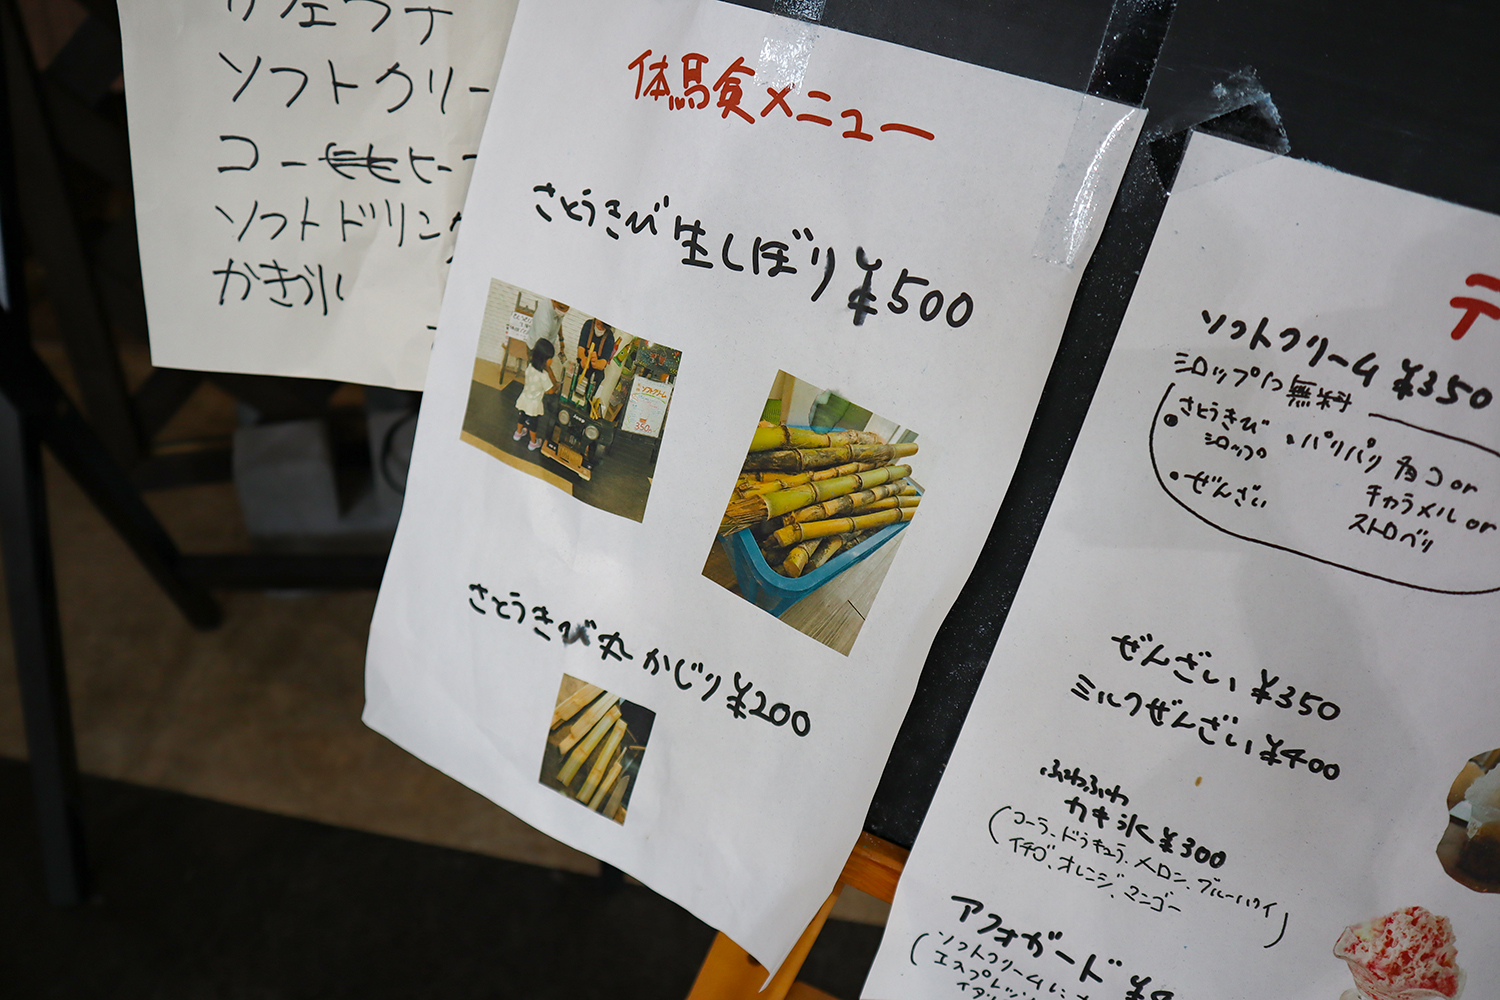 ソフトクリー
コー ヒー
ソフトドリン
かき氷
体験メニュー
さとうきび生しぼり¥500
さとうきび丸かじり¥200
ソフトクリーム ¥350
シロップ1つ無料
・さとうきびシロップ
・ぜんざい
・パリパリチョコor
キャラメルor
ストロベリ
ぜんざい ¥350
ミルクぜんざい ¥400
ふわふわ
カキ氷 ¥300
(コーラ、ドラキュラ、メロン、ブルーハワイ
イチゴ、オレンジ、マンゴー)
アフォガード
(ソフトクリームに
エスプレッソ